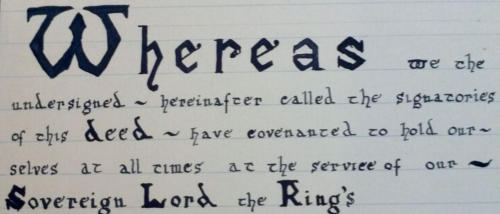 Whereas we the
undersigned ~ hereinafter called the signatories
of this deed ~ have covenanted to hold our~
selves at all times at the service of our ~
Sovereign Lord the King's